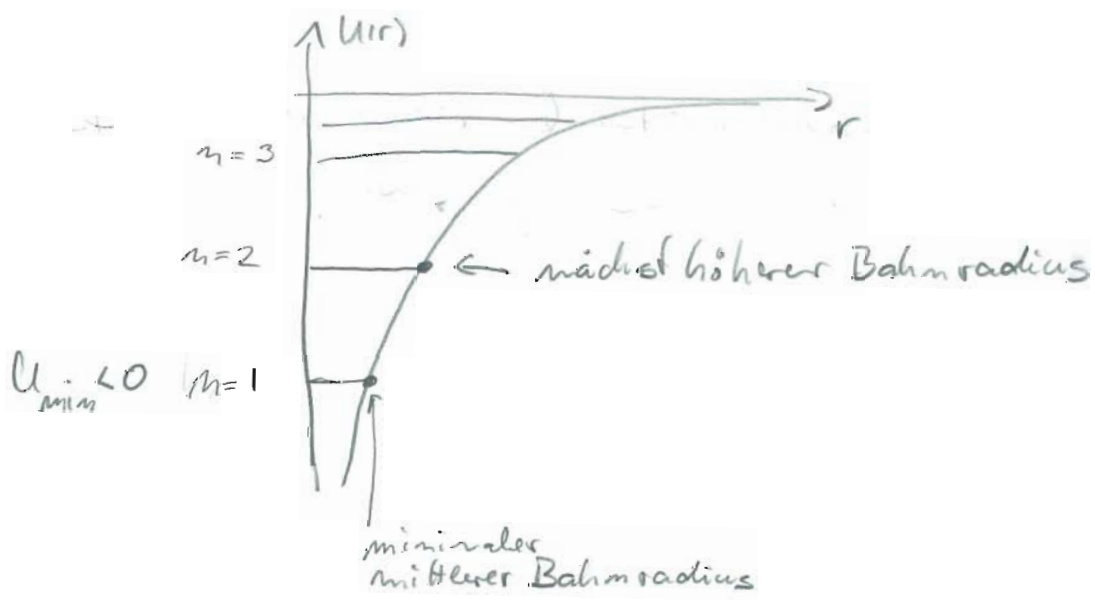 U(r)
r
n=3
n=2
← nächst höherer Bahnradius
U_min<0 n=1
minimaler
mittlerer Bahnradius